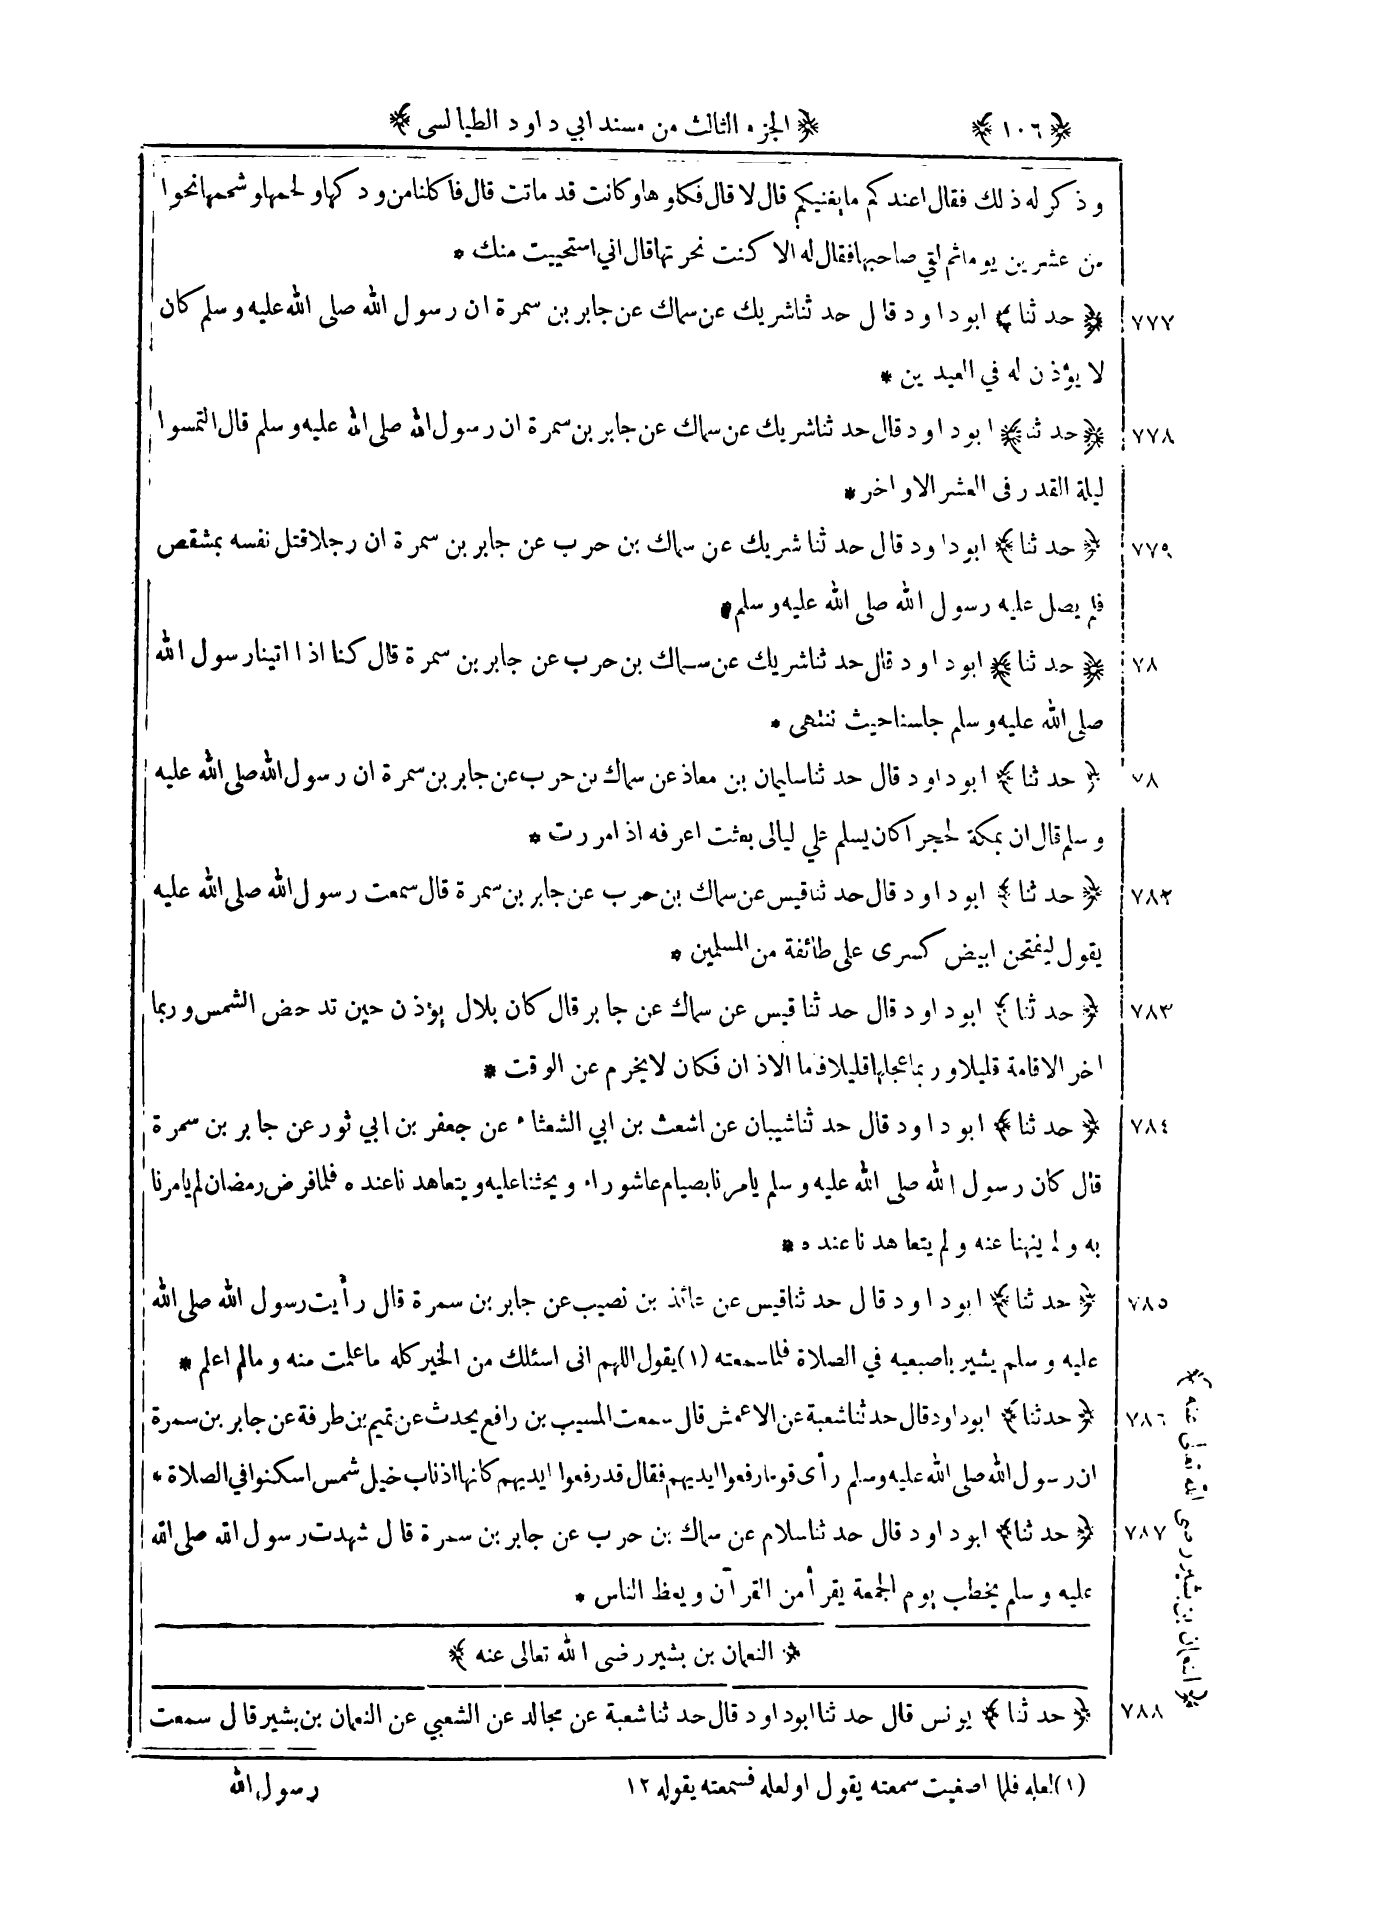 ﴿ ١٠٦ ﴾ ﴿ الجزء الثالث من مسند ابي داود الطيالسى ﴾
وذكر له ذلك فقال اعندكم ما يغنيكم قال لا قال فكلوها وكانت قد ماتت قال فاكلنا من ودكها ولحمها وشحمها نحوا
من عشرين يوما ثم لقي صاحبها فقال له الا كنت نحرتها قال اني استحييت منك *
٧٧٧ ﴿ حدثنا ﴾ ابو داود قال حدثنا شريك عن سماك عن جابر بن سمرة ان رسول الله صلى الله عليه وسلم كان
لا يؤذن له في العيدين *
٧٧٨ ﴿ حدثنا ﴾ ابو داود قال حدثنا شريك عن سماك عن جابر بن سمرة ان رسول الله صلى الله عليه وسلم قال التمسوا
ليلة القدر فى العشر الاواخر *
٧٧٩ ﴿ حدثنا ﴾ ابو داود قال حدثنا شريك عن سماك بن حرب عن جابر بن سمرة ان رجلا قتل نفسه بمشقص
فلم يصل عليه رسول الله صلى الله عليه وسلم *
٧٨ ﴿ حدثنا ﴾ ابو داود قال حدثنا شريك عن سماك بن حرب عن جابر بن سمرة قال كنا اذا اتينا رسول الله
صلى الله عليه وسلم جلسنا حيث ننتهى *
٧٨ ﴿ حدثنا ﴾ ابو داود قال حدثنا سليمان بن معاذ عن سماك بن حرب عن جابر بن سمرة ان رسول الله صلى الله عليه
وسلم قال ان بمكة لحجرا كان يسلم علي ليالى بعثت اعرفه اذا مررت *
٧٨٢ ﴿ حدثنا ﴾ ابو داود قال حدثنا قيس عن سماك بن حرب عن جابر بن سمرة قال سمعت رسول الله صلى الله عليه
يقول ليفتحن ابيض كسرى على طائفة من المسلمين *
٧٨٣ ﴿ حدثنا ﴾ ابو داود قال حدثنا قيس عن سماك عن جابر قال كان بلال يؤذن حين تدحض الشمس وربما
اخر الاقامة قليلا وربما عجلها قليلا فاما الاذان فكان لا يخرم عن الوقت *
٧٨٤ ﴿ حدثنا ﴾ ابو داود قال حدثنا شيبان عن اشعث بن ابي الشعثاء عن جعفر بن ابي ثور عن جابر بن سمرة
قال كان رسول الله صلى الله عليه وسلم يامرنا بصيام عاشوراء ويحثنا عليه ويتعاهدنا عنده فلما فرض رمضان لم يامرنا
به ولم ينهنا عنه ولم يتعاهدنا عنده *
٧٨٥ ﴿ حدثنا ﴾ ابو داود قال حدثنا قيس عن عائذ بن نصيب عن جابر بن سمرة قال رأيت رسول الله صلى الله
عليه وسلم يشير باصبعيه في الصلاة فلما سمعته (١) يقول اللهم انى اسئلك من الخير كله ما علمت منه وما لم اعلم *
٧٨٦ ﴿ حدثنا ﴾ ابو داود قال حدثنا شعبة عن الاعمش قال سمعت المسيب بن رافع يحدث عن تميم بن طرفة عن جابر بن سمرة
ان رسول الله صلى الله عليه وسلم رأى قوما رفعوا ايديهم فقال قد رفعوا ايديهم كانها اذناب خيل شمس اسكنوا في الصلاة *
٧٨٧ ﴿ حدثنا ﴾ ابو داود قال حدثنا سلام عن سماك بن حرب عن جابر بن سمرة قال شهدت رسول الله صلى الله
عليه وسلم يخطب يوم الجمعة يقرأ من القرآن ويعظ الناس *
﴿ النعمان بن بشير رضى الله تعالى عنه ﴾
﴿ النعمان بن بشير رضى الله تعالى عنه ﴾
٧٨٨ ﴿ حدثنا ﴾ يونس قال حدثنا ابو داود قال حدثنا شعبة عن مجالد عن الشعبي عن النعمان بن بشير قال سمعت
(١) لعله فلما اصغيت سمعته يقول او لعله فسمعته يقوله ١٢
رسول الله